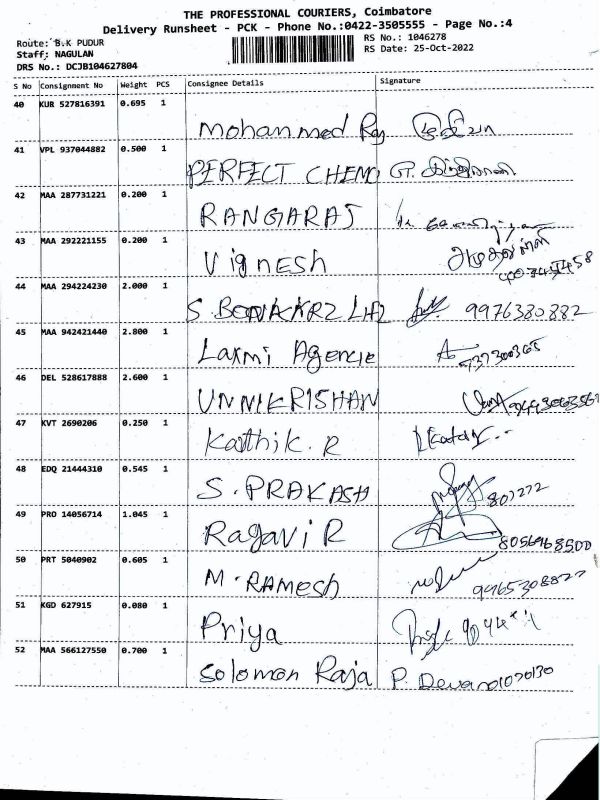 THE PROFESSIONAL COURIERS, Coimbatore
Delivery Runsheet - PCK - Phone No.:0422-3505555 - Page No.:4
Route: B.K PUDUR
RS No.: 1046278
Staff: NAGULAN
RS Date: 25-Oct-2022
DRS No.: DCJB104627804
S No Consignment No Weight PCS Consignee Details Signature
40 KUB 527816391 0.695 1
Mohammed
41 VPL 937044882 0.500 1
PERFECT CHEMO
42 MAA 287731221 0.200 1
RANGARAJ
43 MAA 292221155 0.200 1
Vignesh
44 MAA 294224230 2.000 1
S. 9976380882
45 MAA 942421440 2.800 1
Laxmi Agencie
46 DEL 528617888 2.600 1
UNNIKRISHAN
47 KVT 2690206 0.250 1
Karthik. R
48 EDQ 21444310 0.545 1
S. PRAKASH
49 PRO 14056714 1.045 1
Ragavi R 8056968500
50 PRT 5040902 0.605 1
M. RAMESH
51 KGD 627915 0.080 1
Priya
52 MAA 566127550 0.700 1
Solomon Raja P.